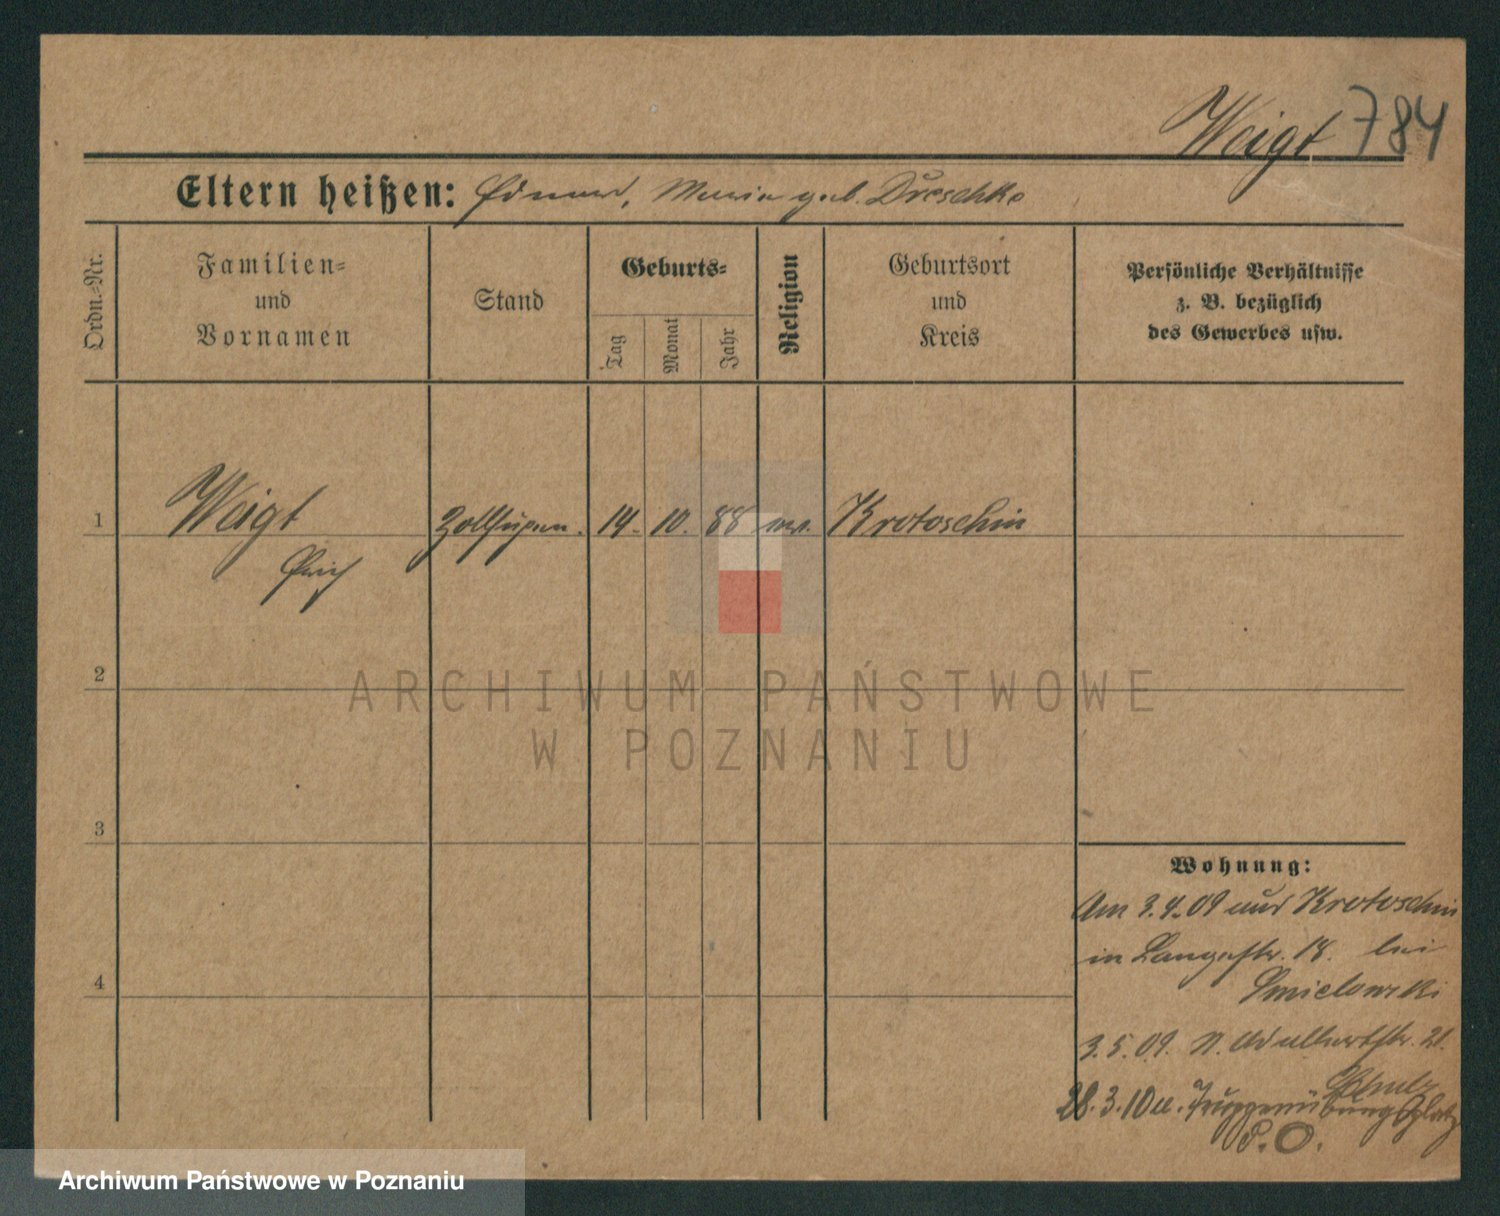 Weigt 784
Eltern heißen: Eduard, Maria geb. Dreschke
Ordn.-Nr.
Familien-
und
Vornamen
Stand
Geburts-
Tag
Monat
Jahr
Religion
Geburtsort
und
Kreis
Persönliche Verhältnisse
z. B. bezüglich
des Gewerbes usw.
1
Weigt
14. 10. 88
Krotoschin
Erich
2
3
4
Wohnung:
Am 3.4.09 aus Krotoschin
in Langestr. 18. bei
Smielowski
3.5.09. n. Adalbertstr. 21.
Schulz
28.3.10 n. Truppenübungsplatz
P.O.
ARCHIWUM PAŃSTWOWE
W POZNANIU
Archiwum Państwowe w Poznaniu